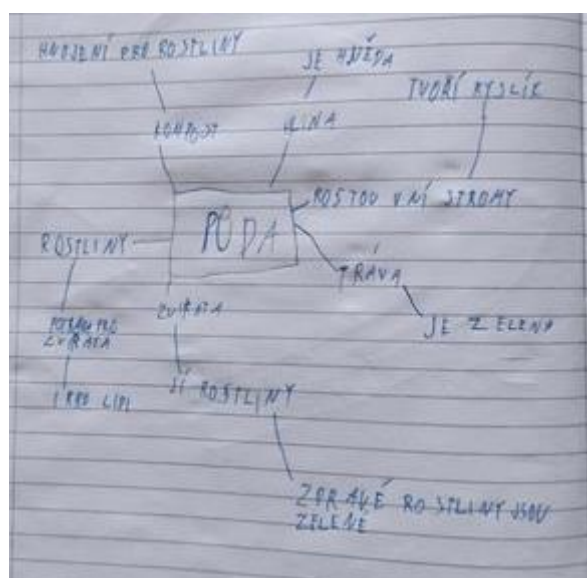 HNOJENÍ PRO ROSTLINY
JE HNĚDA
TVOŘÍ KYSLÍK
KOMPOST
HLINA
ROSTOU V NÍ STROMY
PŮDA
ROSTLINY
TRÁVA
ZVÍŘATA
JE ZELENÁ
POTRAVA PRO
ZVÍŘATA
JÍ ROSTLINY
I PRO LIDI
ZDRAVÉ ROSTLINY JSOU
ZELENÉ